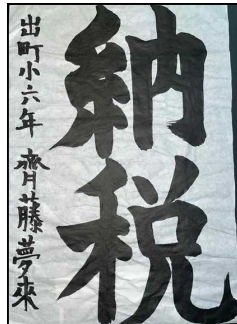 納税
出町小六年 齊藤夢來